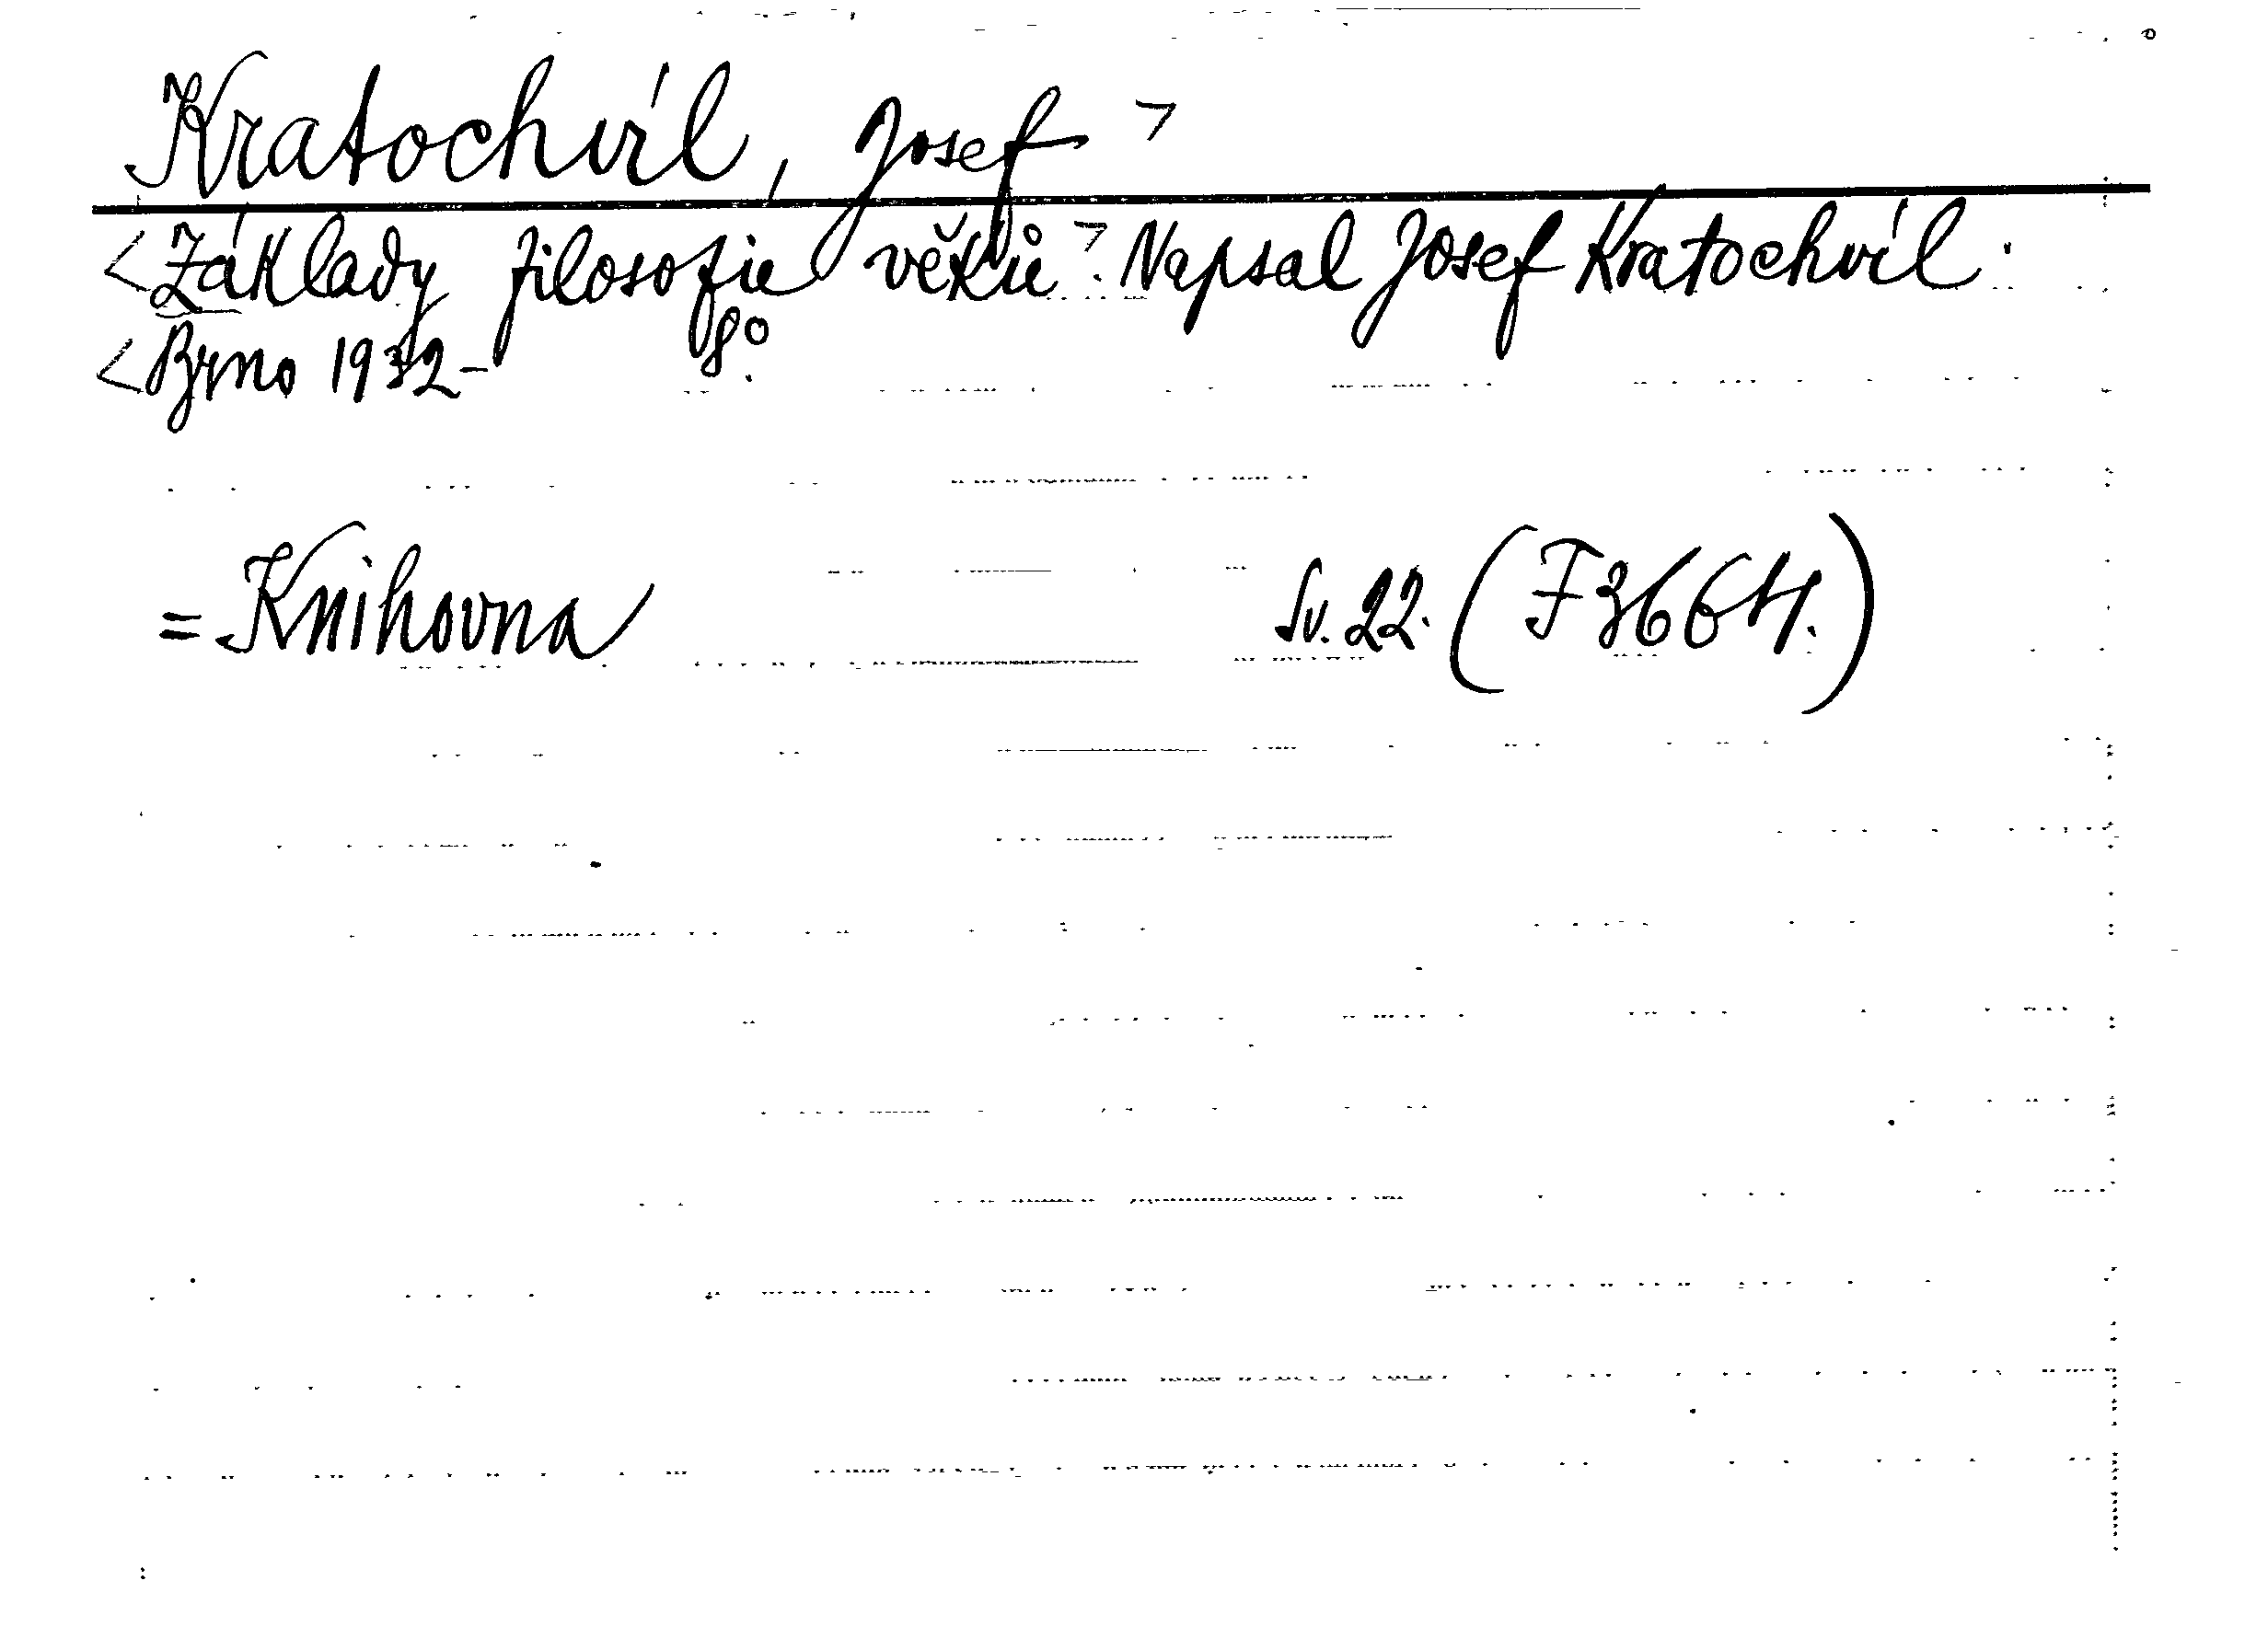 Kratochvíl, Josef >
< Základy filosofie věků >. Napsal Josef Kratochvíl.
< Brno 1932- 8°.
= Knihovna Sv. 22. (F 3664.)